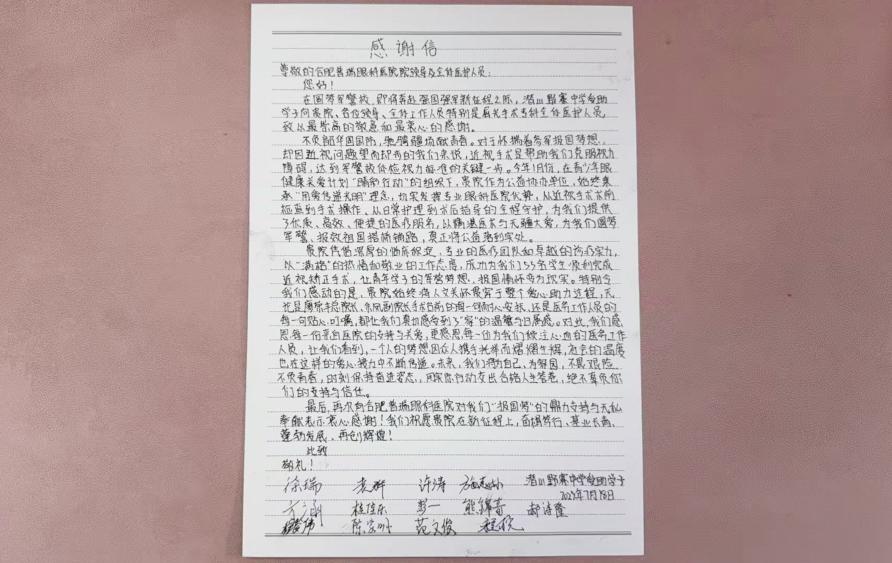 感谢信
尊敬的合肥普瑞眼科医院院领导及全体医护人员：
您好！
在圆梦军警校，即将奔赴强国强军新征程之际，潜山野寨中学受助
学子向贵院、各位领导、全体工作人员特别是屈光手术专科全体医护人员
致以最崇高的敬意和最衷心的感谢。
不负韶华固国防，驰骋疆场献青春。对于怀揣着参军报国梦想，
却因近视问题望而却步的我们来说，近视手术是帮助我们克服视力
障碍，达到军警校体检视力标准的关键一步。今年1月份，在青少年眼
健康关爱计划“晴朗行动”的组织下，贵院作为公益协办单位，始终秉
承“用爱传递光明”理念，切实发挥专业眼科医院优势，从近视手术术前
检查到手术操作，从日常护理到术后指导的全程守护，为我们提供
了优质、高效、便捷的医疗服务，以精湛医术与无疆大爱，为我们圆梦
军警、报效祖国搭桥铺路，真正将公益落到实处。
贵院凭借深厚的临床积淀，专业的医疗团队和卓越的诊疗实力，
以“满格”的热情和敬业的工作态度，成功为我们55名学生顺利完成
近视矫正手术，让青年学子的军营梦想、报国情怀变为现实。特别令
我们感动的是，贵院始终将人文关怀贯穿于整个爱心助力过程，无
论是廉院长总院长、余凤副院长手术日前的每一句耐心安抚，还是医务工作人员的
每一句贴心叮嘱，都让我们真切感受到了“家”的温馨与归属感。对此，我们感
恩每一份来自医院的支持与关爱，更感恩每一位为我们倾注心血的医务工作
人员，让我们看到，一个人的梦想因众人携手托举而熠熠生辉，社会的温度
也在这样的爱心接力中不断传递。未来，我们将为自己、为祖国，不畏艰险
不负青春，时刻保持奋进姿态，用实际行动交出合格人生答卷，绝不辜负你
们的支持与信任。
最后，再次向合肥普瑞眼科医院对我们“报国梦”的鼎力支持与无私
奉献表示衷心感谢！我们祝愿贵院在新征程上，奋楫笃行、基业长青、
蓬勃发展、再创辉煌！
此致
敬礼！
徐瑞 袁野 许涛 潜山野寨中学受助学子
7月18日
桂佳乐 彭一 熊锦青 郝诗隆
陈宗 范文俊 程